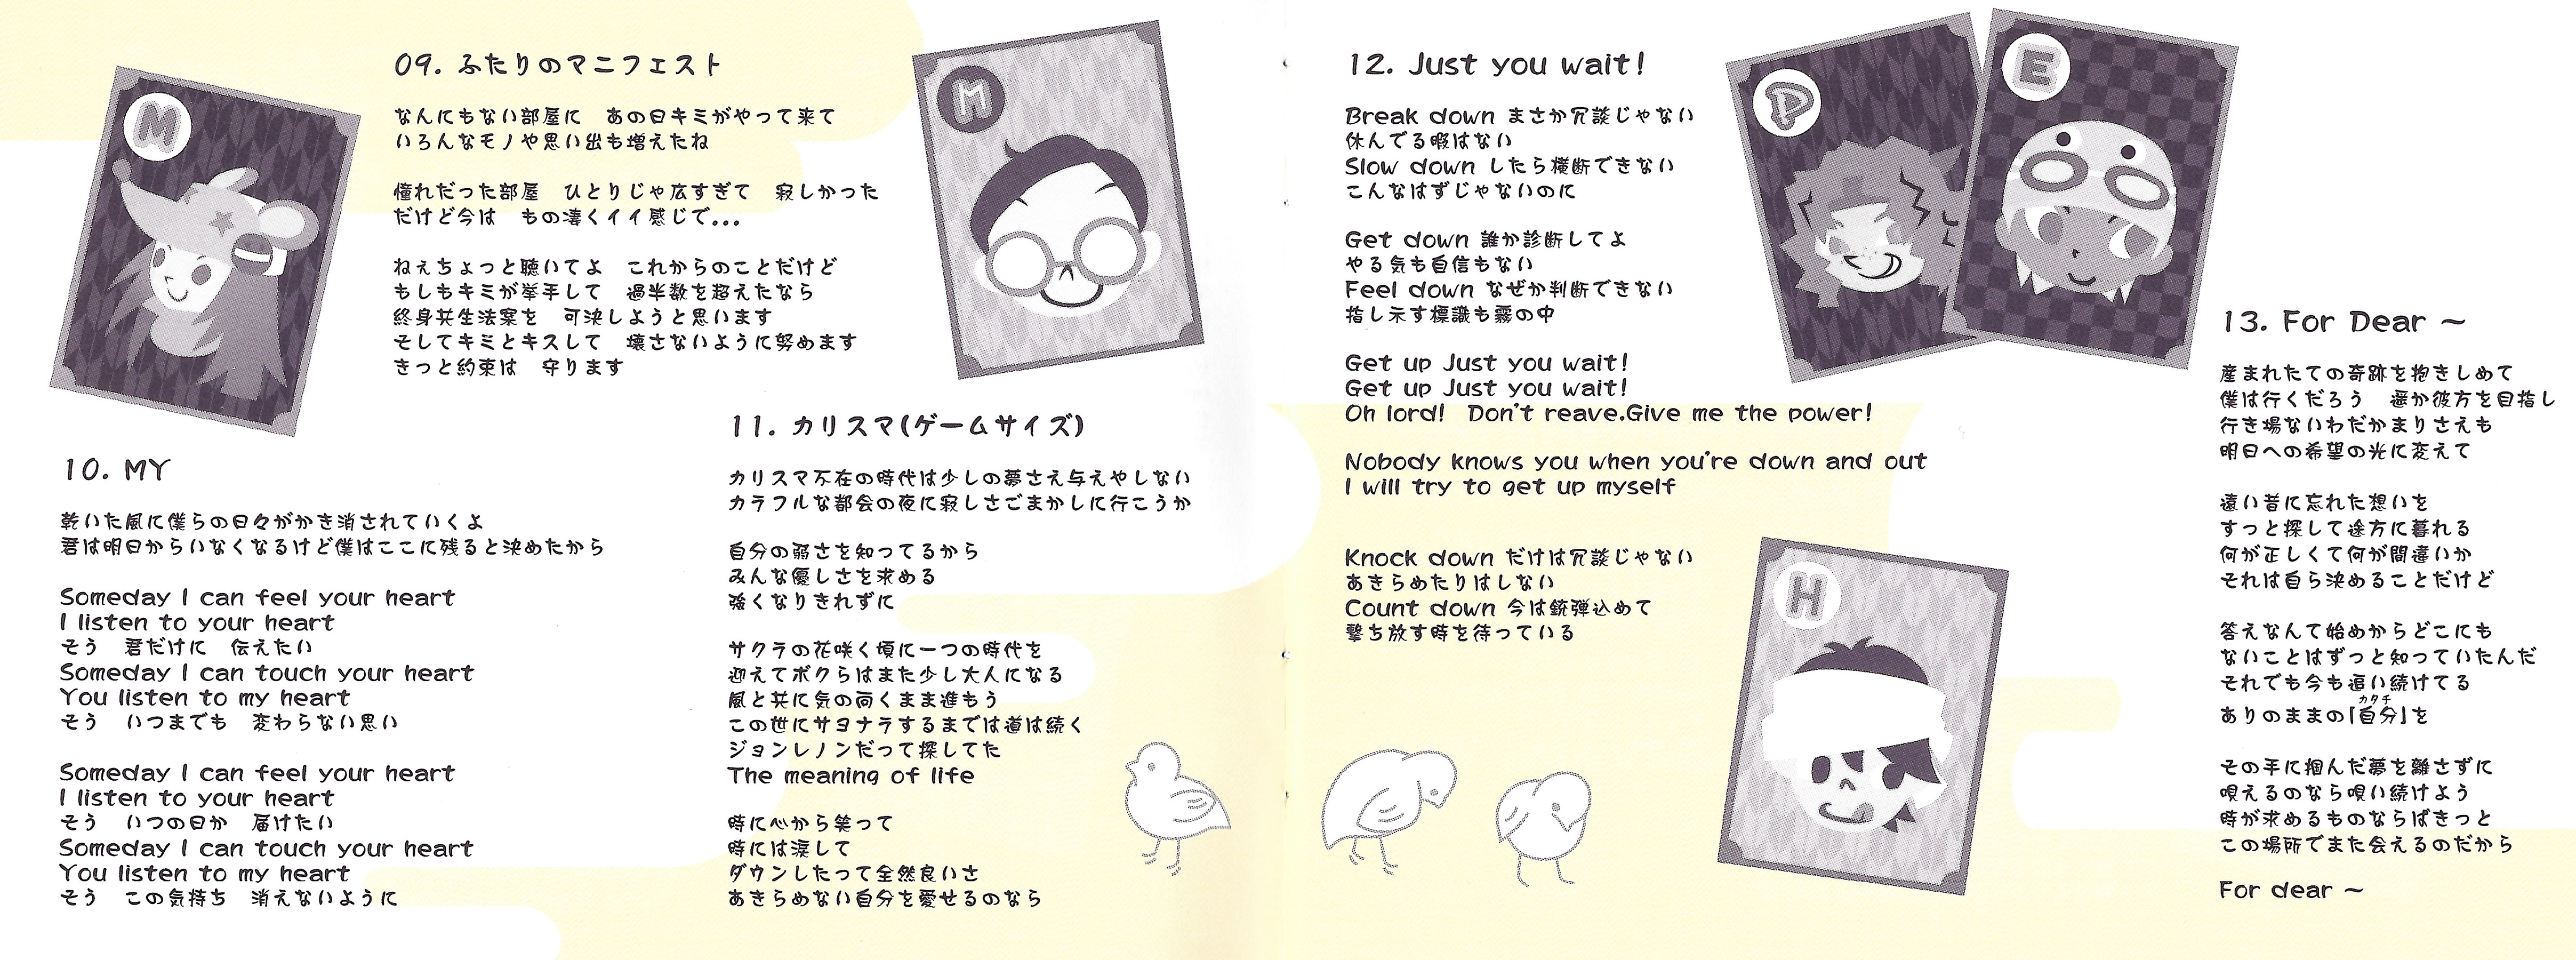 09. ふたりのマニフェスト
なんにもない部屋に　あの日キミがやって来て
いろんなモノや思い出も増えたね
憧れだった部屋　ひとりじゃ広すぎて　寂しかった
だけど今は　もの凄くイイ感じで...
ねぇちょっと聴いてよ　これからのことだけど
もしもキミが挙手して　過半数を超えたなら
終身共生法案を　可決しようと思います
そしてキミとキスして　壊さないように努めます
きっと約束は　守ります
M
M
10. MY
乾いた風に僕らの日々がかき消されていくよ
君は明日からいなくなるけど僕はここに残ると決めたから
Someday I can feel your heart
I listen to your heart
そう　君だけに　伝えたい
Someday I can touch your heart
You listen to my heart
そう　いつまでも　変わらない思い
Someday I can feel your heart
I listen to your heart
そう　いつの日か　届けたい
Someday I can touch your heart
You listen to my heart
そう　この気持ち　消えないように
11. カリスマ(ゲームサイズ)
カリスマ不在の時代は少しの夢さえ与えやしない
カラフルな都会の夜に寂しさごまかしに行こうか
自分の弱さを知ってるから
みんな優しさを求める
強くなりきれずに
サクラの花咲く頃に一つの時代を
迎えてボクらはまた少し大人になる
風と共に気の向くまま進もう
この世にサヨナラするまでは道は続く
ジョンレノンだって探してた
The meaning of life
時に心から笑って
時には涙して
ダウンしたって全然良いさ
あきらめない自分を愛せるのなら
12. Just you wait!
Break down まさか冗談じゃない
休んでる暇はない
Slow down したら横断できない
こんなはずじゃないのに
Get down 誰か診断してよ
やる気も自信もない
Feel down なぜか判断できない
指し示す標識も霧の中
Get up Just you wait!
Get up Just you wait!
Oh lord!  Don't reave.Give me the power!
Nobody knows you when you're down and out
I will try to get up myself
Knock down だけは冗談じゃない
あきらめたりはしない
Count down 今は銃弾込めて
撃ち放す時を待っている
P
E
H
13. For Dear ～
産まれたての奇跡を抱きしめて
僕は行くだろう　遥か彼方を目指し
行き場ないわだかまりさえも
明日への希望の光に変えて
遠い昔に忘れた想いを
すっと探して途方に暮れる
何が正しくて何が間違いか
それは自ら決めることだけど
答えなんて始めからどこにも
ないことはずっと知っていたんだ
それでも今も追い続けてる
カタチ
ありのままの「自分」を
その手に掴んだ夢を離さずに
唄えるのなら唄い続けよう
時が求めるものならばきっと
この場所でまた会えるのだから
For dear ～